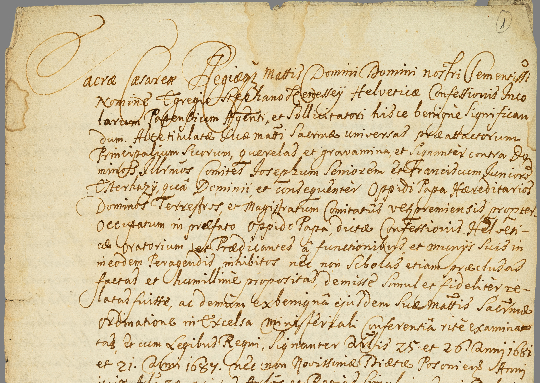 1
Sacrae Caesareae Regiaeq Mattis Domini Domini nostri Clementissi
Nomine Egregio Stephano Kenessey Helveticae Confessionis Inco
larum Papensium Agenti, et Sollicitatori hisce benigne significan
dum. Altetitulatae Suae Matti Sacrmae universas praeattactorum
Principalium Suorum, querelas et gravamina et signanter contra Do
minos Comites Josephum Seniorem et Franciscum Juniorem
Eszterhazy, qua Dominii et consequenter Oppidi Papa Haereditarios
Dominos Terrestres et Magistratum Comitatus Veszpremiensis propter
Occupatum in praefato Oppido Papa, dictae Confessionis Helveti
cae Oratorium et Praedicantes a functionibus et munijs suis in
ineodem Peragendis inhibitos nec non Scholas etiam praeclusas
factas et humillime propositas, demisse simul et fideliter re
latas fuisse, ac demum ex benigna ejusdem Suae Mattis Sacrmae
ordinatione in Excelsa Ministeriali Conferentia rite examina
tas, et cum Legibus Regni, signanter Artlis 25 et 26 Anni 1681
et 21. Anni 1687. nec non Novissimae Diaetae Posoniensis Anni